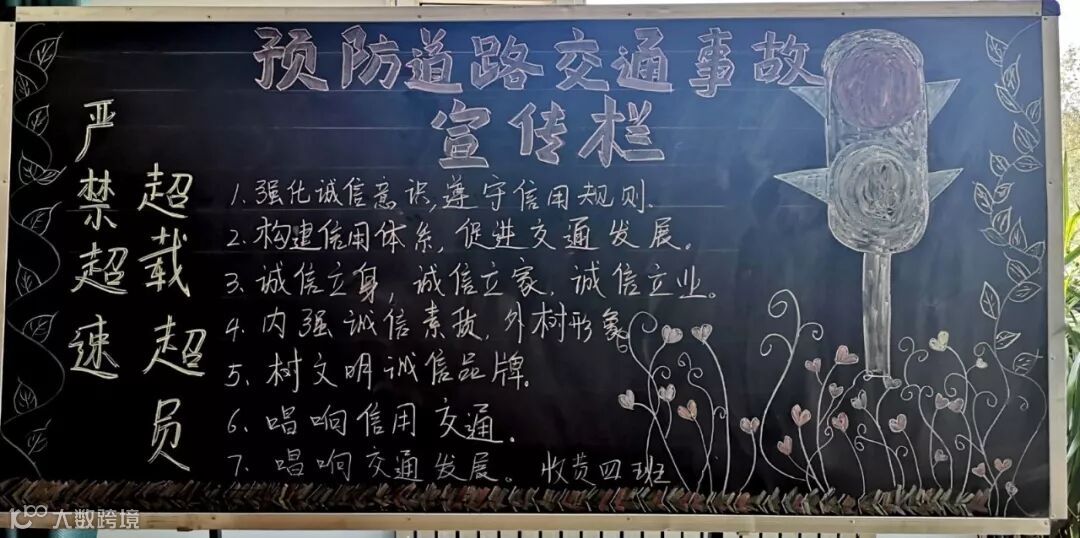 预防道路交通事故
宣传栏
严禁超速
超载超员
1.强化诚信意识,遵守信用规则.
2.构建信用体系,促进交通发展。
3.诚信立身,诚信立家,诚信立业。
4.内强诚信素质,外树形象。
5、树文明诚信品牌。
6、唱响信用交通。
7、唱响交通发展。 收费四班
大数跨境